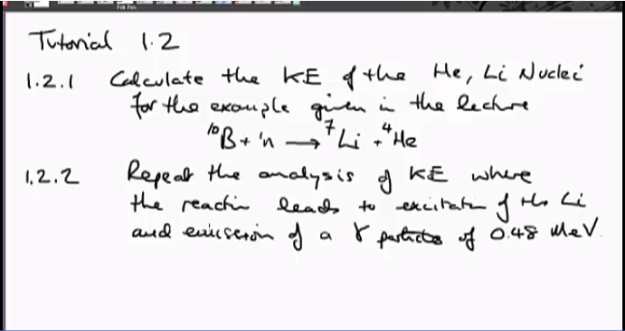 Tutorial 1.2
1.2.1 Calculate the KE of the He, Li Nuclei
for the example given in the lecture
¹⁰B + ¹n → ⁷Li + ⁴He
1.2.2 Repeat the analysis of KE where
the reaction leads to excitation of the Li
and emission of a γ particle of 0.48 MeV.